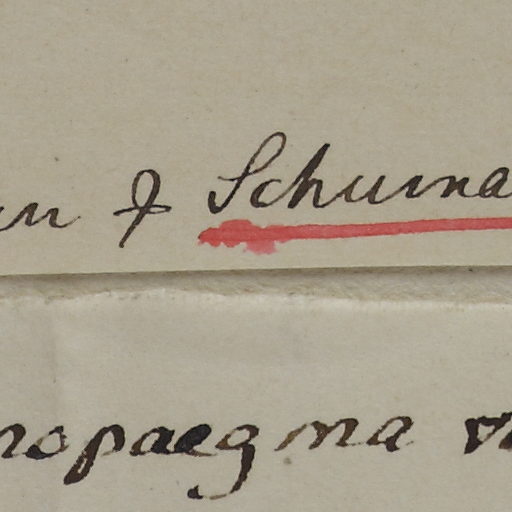 & Schuma
nopaegma v